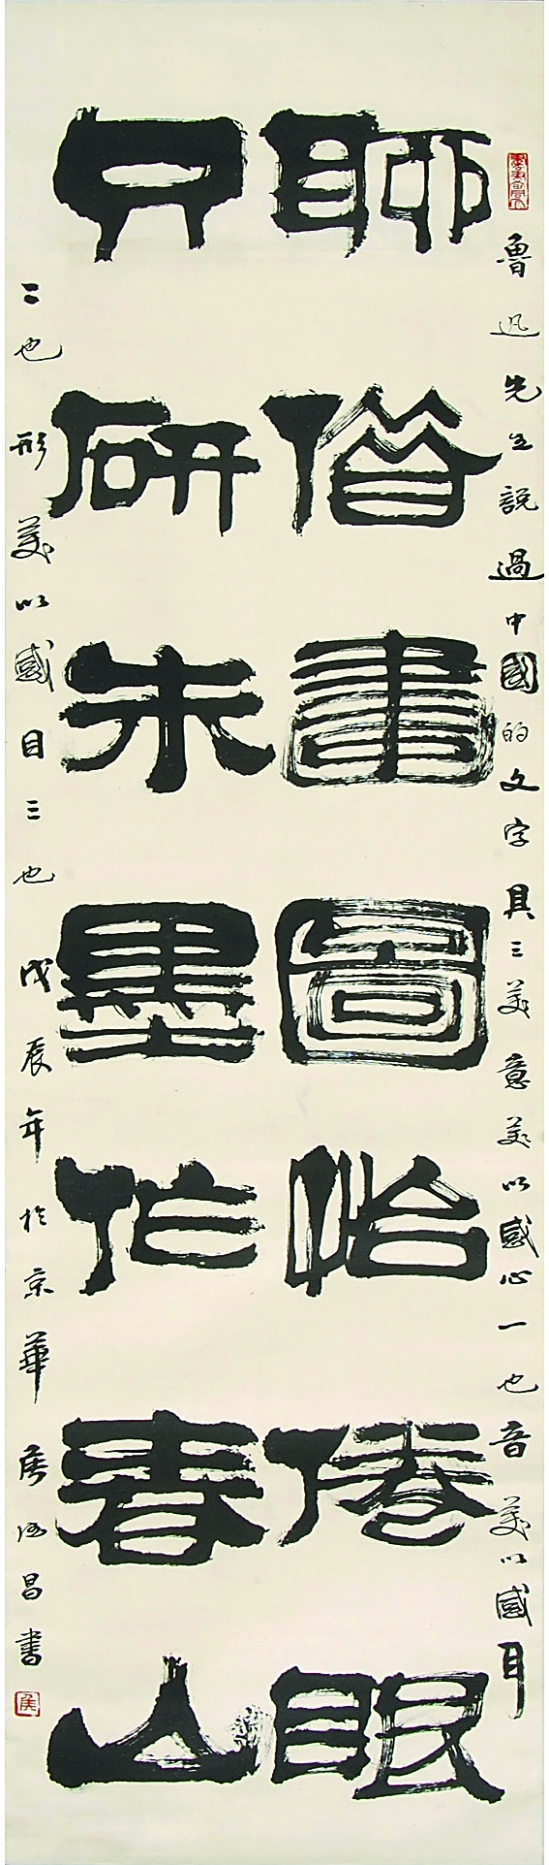 魯迅先生說過中國的文字具三美意美以感心一也音美以感耳
聊借畫圖怡倦眼
只研朱墨作春山
二也形美以感目三也戊辰年於京華侯德昌書
侯